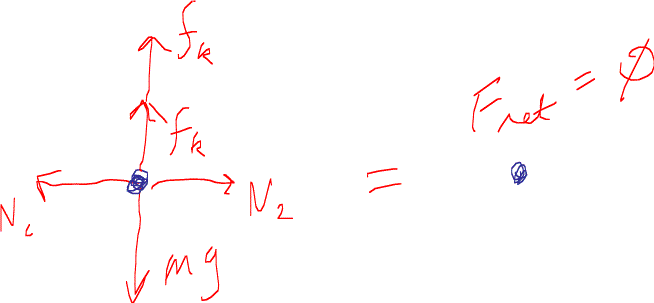 fk
fk
N1
N2
mg
=
Fnet = 0